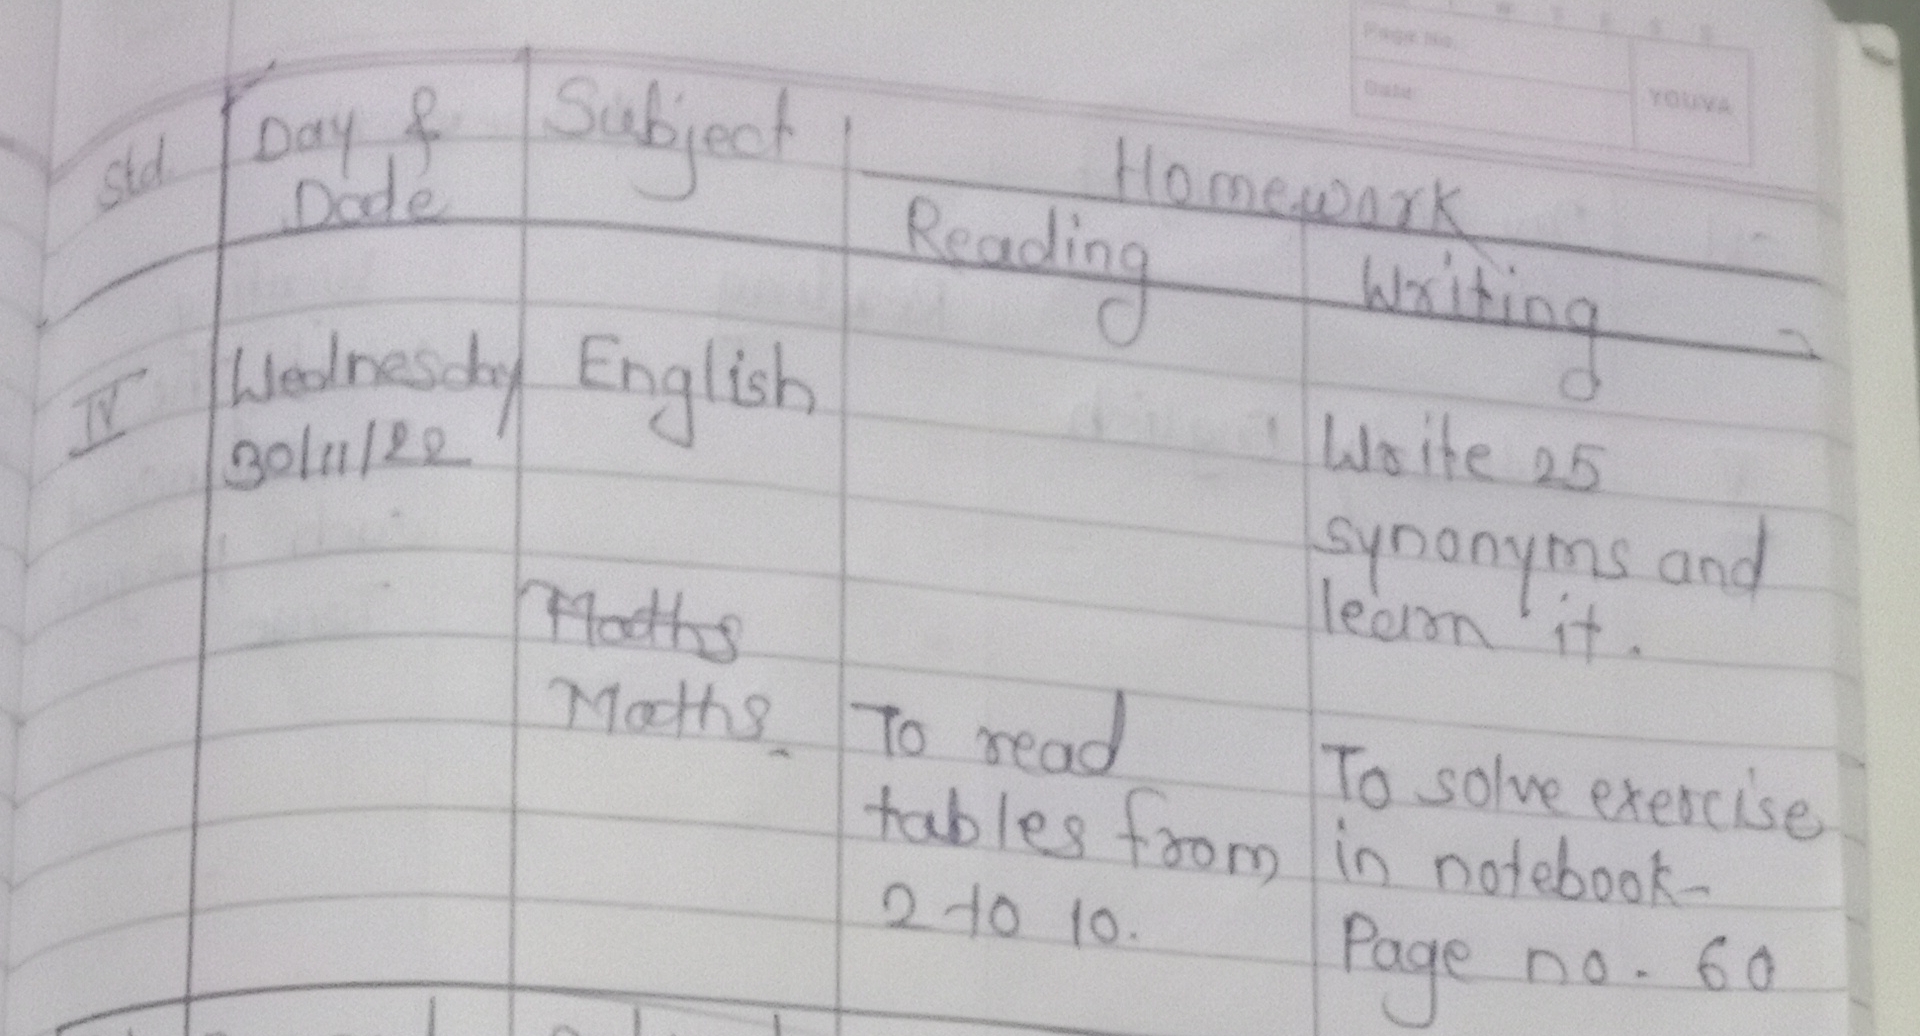 Page No.
Date
YOUVA
Std. Day & Subject Homework
Dade Reading Writing
IV Wednesday English
30/11/22 Write 25
synonyms and
learn it.
Maths
Maths. To read To solve exercise
tables from in notebook-
2 to 10. Page no. 60